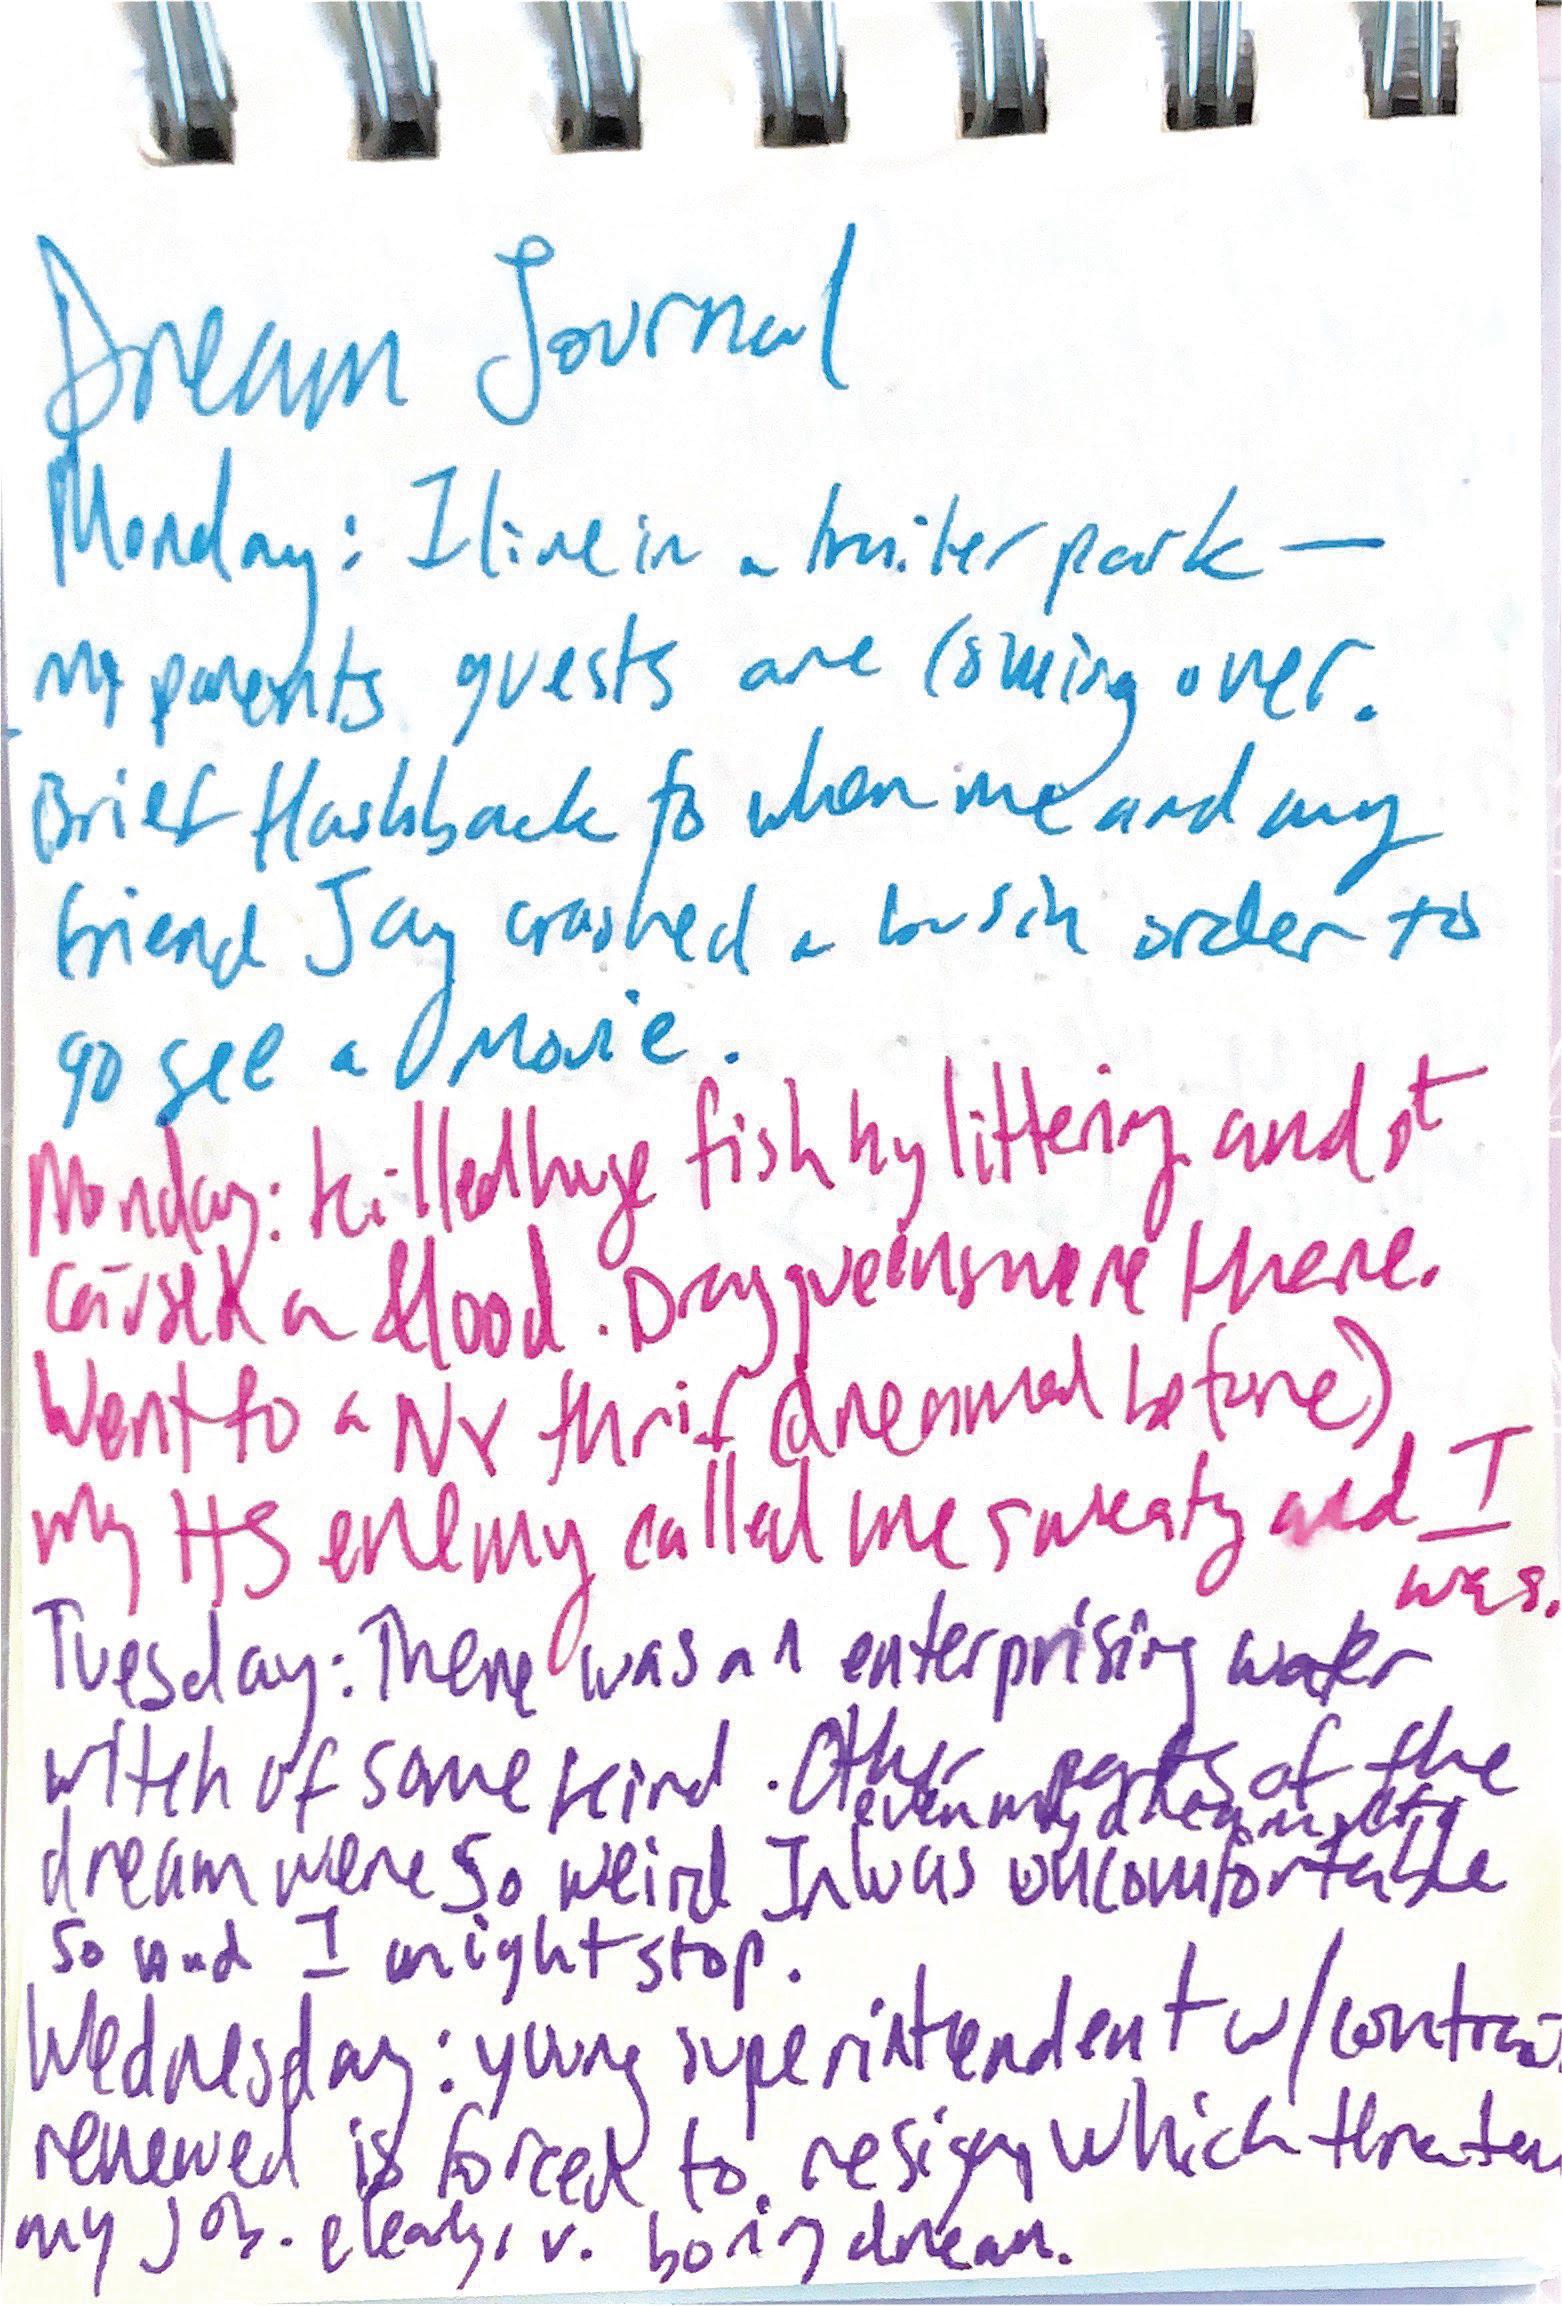 Dream Journal
Monday: I live in a trailer park —
my parents guests are coming over.
Brief flashback to when me and my
friend Jay crashed a bus in order to
go see a movie.
Monday: killed huge fish by littering and it
caused a flood. Drag queens were there.
Went to a NY thrift (dreamed before)
my HS enemy called me sweaty and I
was.
Tuesday: There was an enterprising water
witch of some kind. Other parts of the
even my dream
dream were so weird I was uncomfortable
so and I might stop.
Wednesday: young superintendent w/contract
renewed is forced to resign, which threaten
my job. clearly, v. boring dream.